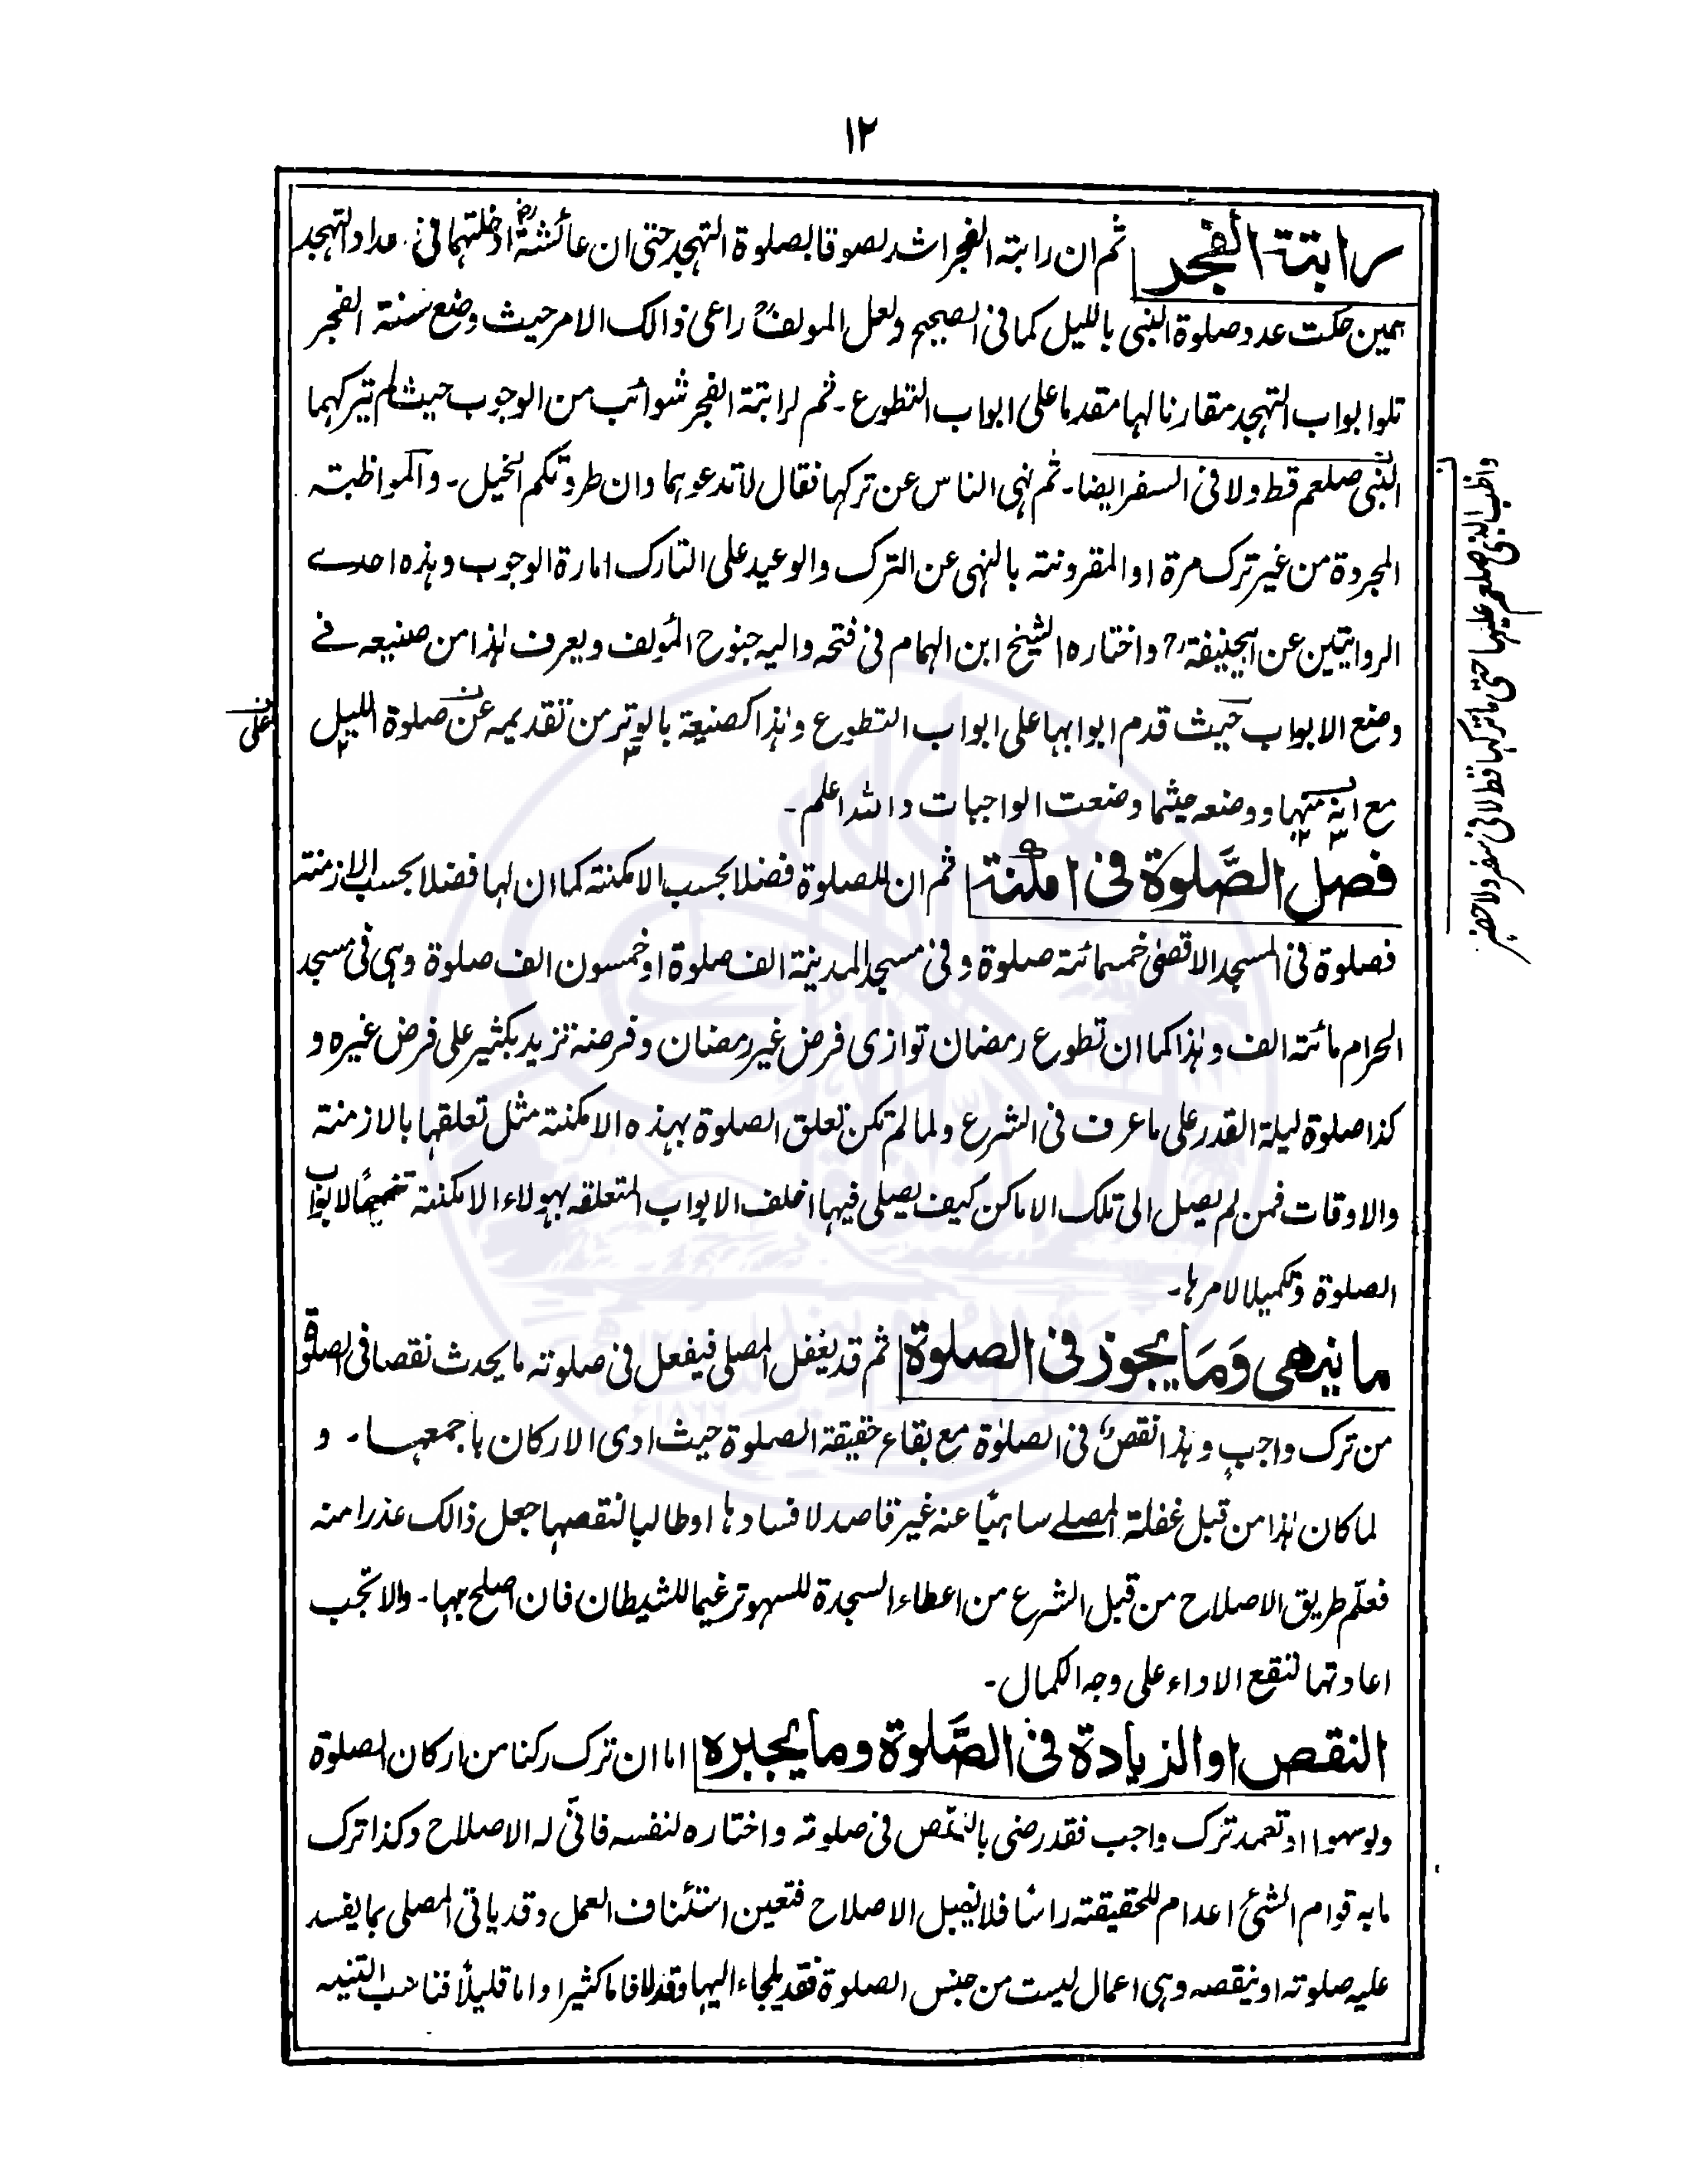 ١٢
رابتة الفجر ثم ان رابتة الفجر اشد لصوقا بصلوة التهجد حتى ان عائشة رض ادخلتهما فى عداد التهجد
حين حكت عدد صلوة النبى بالليل كما فى الصحيح ولعل المولف رح راعى ذالك الامر حيث وضع سنة الفجر
تلو ابواب التهجد مقارنا لها مقدما على ابواب التطوع ـ ثم لرابتة الفجر شوائب من الوجوب حيث لم يتركهما
النبى صلعم قط ولا فى السفر ايضا ـ ثم نهى الناس عن تركها فقال لا تدعوهما وان طردتكم الخيل ـ والمواظبته
المجردة من غير ترك مرة او المقرونته بالنهى عن الترك والوعيد على التارك امارة الوجوب وهذه احدے
الروايتين عن ابيحنيفة رح واختاره الشيخ ابن الهمام فى فتحه واليه جنوح المؤلف ويعرف هذا من صنيعه فے
وضع الابواب حيث قدم ابوابها على ابواب التطوع وهذا كصنيعة بالوتر من تقديمه عن صلوة الليل
مع انه منها ووضعه حيثما وضعت الواجبات والله اعلم ـ
فصل الصَّلوة فى امكنة ثم ان للصلوة فضلا بحسب الامكنته كما ان لها فضلا بحسب الازمنته
فصلوة فى المسجد الاقصى خمسمائته صلوة وفى مسجد المدينة الف صلوة او خمسون الف صلوة وهى فى مسجد
الحرام مائته الف وهذا كما ان تطوع رمضان توازى فرض غير رمضان وفرضه تزيد بكثير على فرض غيره و
كذا صلوة ليلة القدر على ما عرف فى الشرع ولما لم تكن تعلق الصلوة بهذه الامكنته مثل تعلقها بالازمنته
والاوقات فمن لم يصل الى تلك الاماكن كيف يصلى فيها اخلف الابواب المتعلقه بهولاء الامكنته تتميماً لابواب
الصلوة وتكميلا لامرها ـ
ما ينهى وَمَا يجوز فى الصلوة ثم قد يغفل المصلى فيفعل فى صلوته ما يحدث نقصا فى الصلوة
من ترك واجبٍ وهذا نقصٌ فى الصلوٰة مع بقاء حقيقة الصلوة حيث ادى الاركان باجمعها ـ و
لما كان هذا من قبل غفلة المصلے ساهيًا عنه غير قاصد لافسادها او طالبا لنقصها جعل ذالك عذرا منه
فعلّم طريق الاصلاح من قبل الشرع من اعطاء السجدة للسهو ترغيما للشيطان فان اصلح بها ـ والا تجب
اعادتها لتقع الاداء على وجه الكمال ـ
النقص او الزيادة فى الصَّلوة وما يجبره اما ان ترك ركنا من اركان الصلوة
ولو سهوا او تعمد ترك واجب فقد رضى بالنقص فى صلوته واختاره لنفسه فانّى له الاصلاح وكذا ترك
ما به قوام الشئ اعدام للحقيقته راسًا فلا يقبل الاصلاح فتعين استئناف العمل وقد ياتى المصلى بما يفسد
عليه صلوته او ينقصه وهى اعمال ليست من جنس الصلوة فقد يلجاء اليها وقد لا فاما كثيرا واما قليلاً فناسب التنبيه
واظب النبى صلعم عليها حتى ما تركها قط لا فى سفر ولا حضر
على